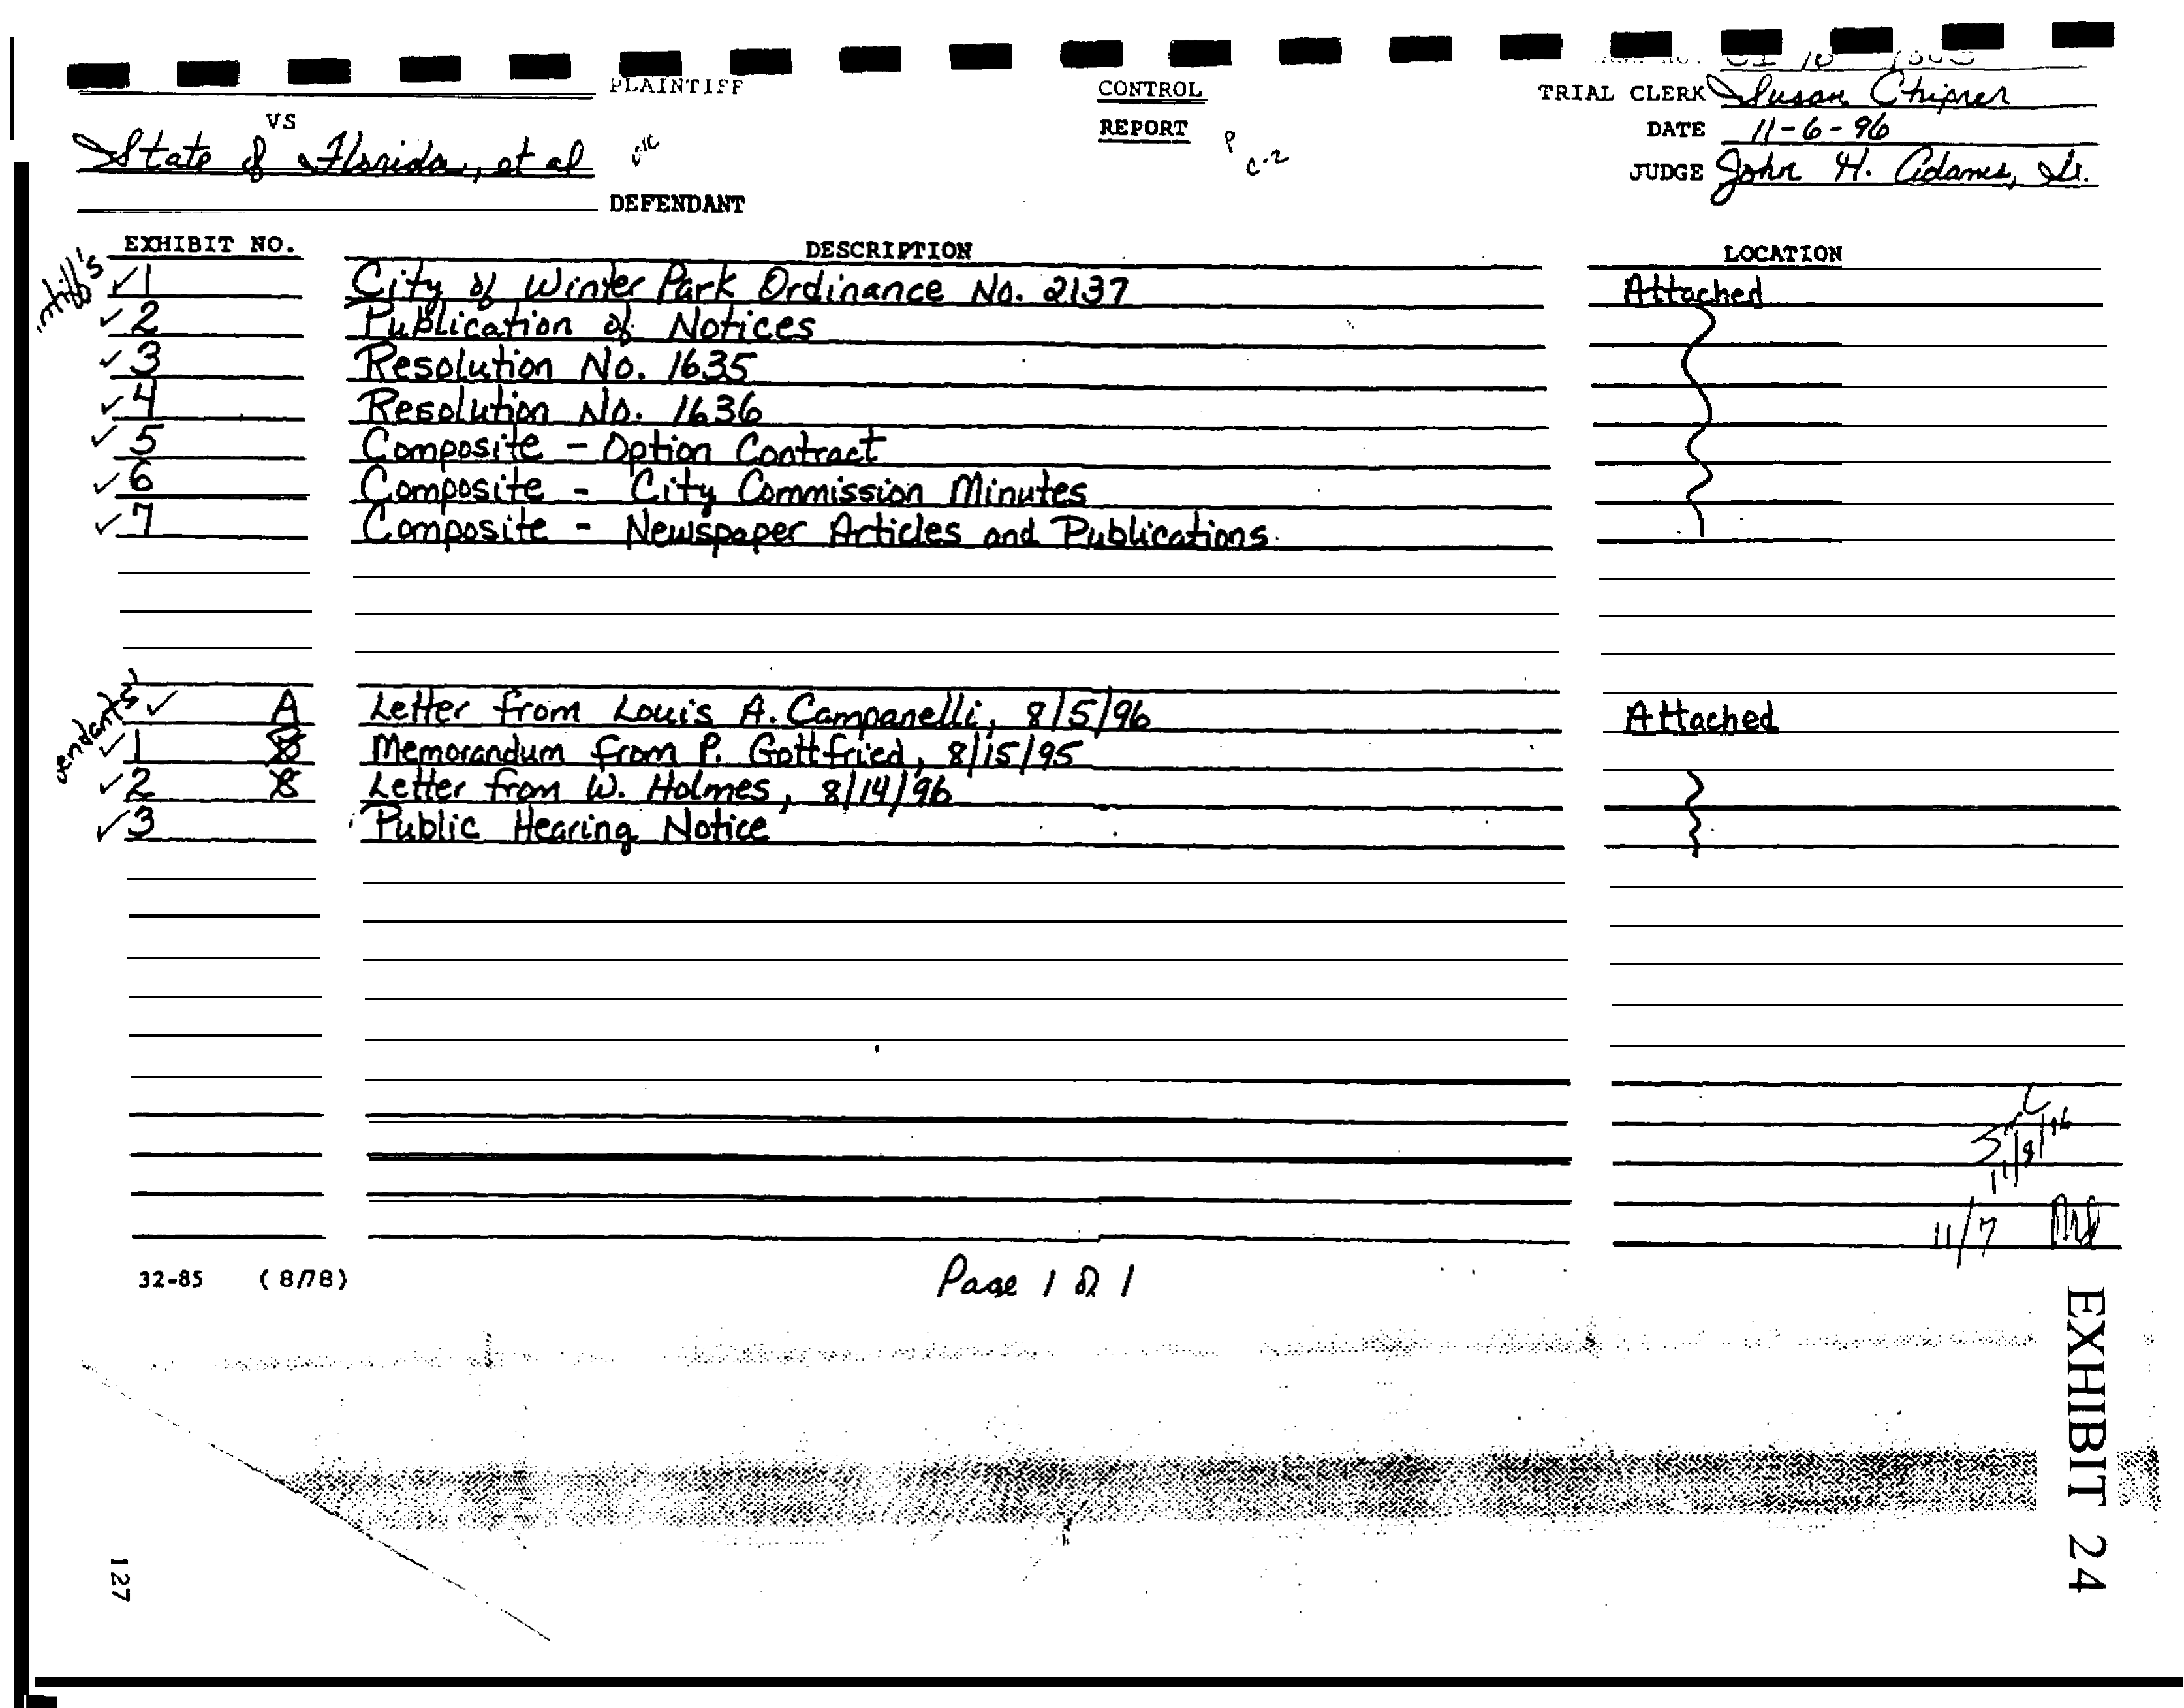 PLAINTIFF
CONTROL
REPORT
TRIAL CLERK Susan Chipner
VS
DATE 11-6-96
State of Florida, et al
P
C-2
JUDGE John H. Adams, Sr.
DEFENDANT
EXHIBIT NO. DESCRIPTION LOCATION
✓ 1 City of Winter Park Ordinance No. 2137 Attached
✓ 2 Publication of Notices
✓ 3 Resolution No. 1635
✓ 4 Resolution No. 1636
✓ 5 Composite - Option Contract
✓ 6 Composite - City Commission Minutes
✓ 7 Composite - Newspaper Articles and Publications
✓ A Letter from Louis A. Campanelli, 8/5/96 Attached
✓ 1 Memorandum from P. Gottfried, 8/15/95
✓ 2 Letter from W. Holmes, 8/14/96
✓ 3 Public Hearing Notice
11/8/96
11/7
32-85 (8/78)
Page 1 of 1
EXHIBIT 24
127